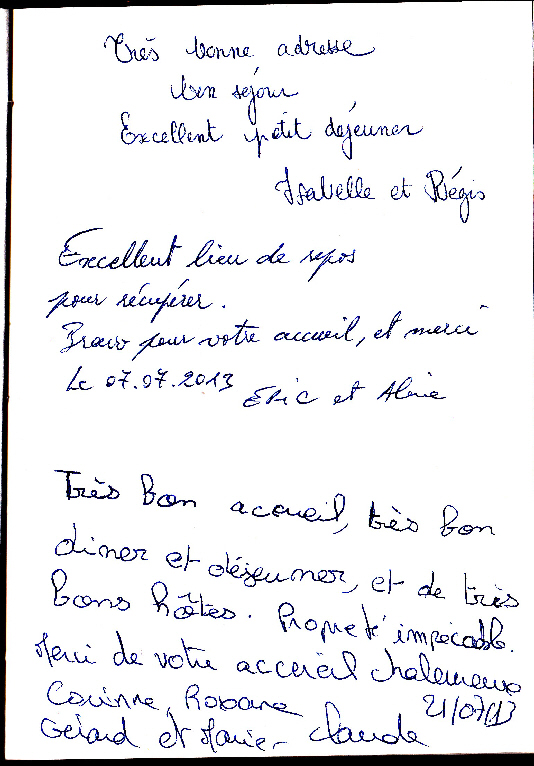 Très bonne adresse
bon séjour
Excellent petit déjeuner
Isabelle et Régis
Excellent lieu de repos
pour récupérer.
Bravo pour votre accueil, et merci
Le 07.07.2013
Eric et Aline
Très bon accueil, très bon
diner et déjeuner, et de très
bons hôtes. Propreté impécable.
Merci de votre accueil chaleureux
Corinne, Roxane
21/07/13
Gérard et Marie-Claude